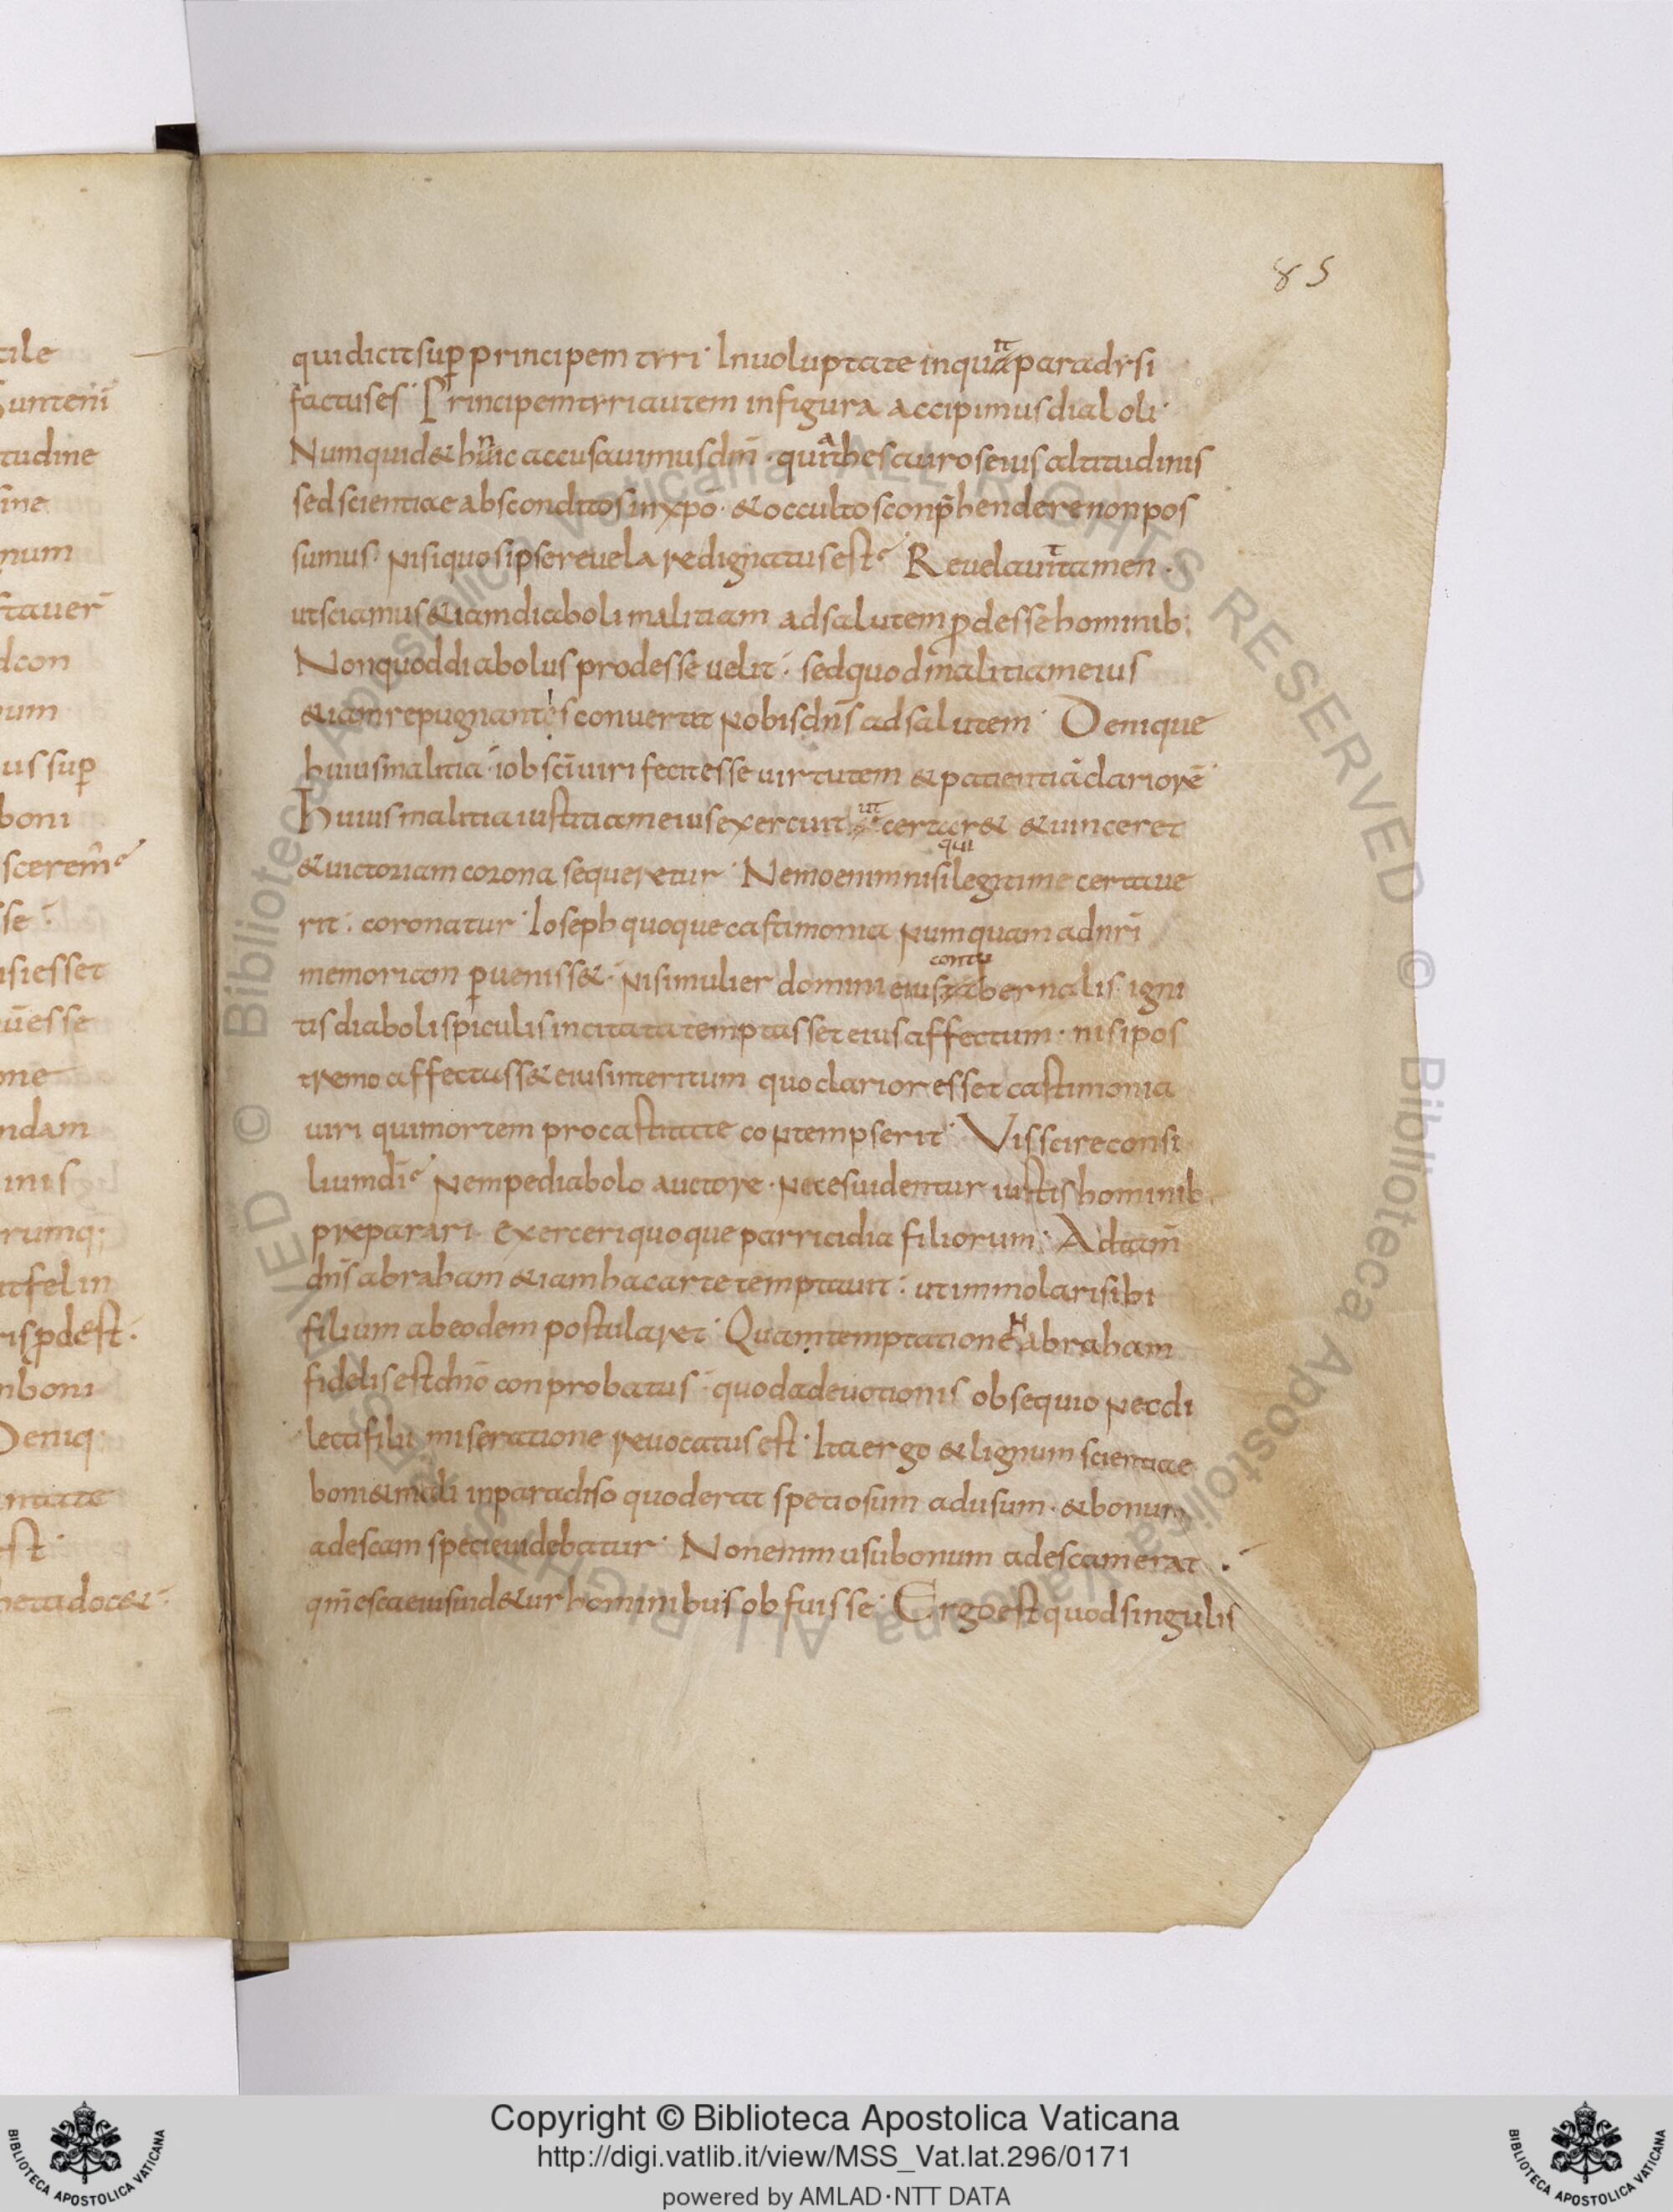 85
tile
sunt enī
tudine
sine
num
staver̄
dcon
uum
us sup
boni
scerem̄
se
si esset
ūesse
one
ndam
inis
rumq;
ut fel in
ris ꝓdest.
nboni
Deniq
ntate
est
heta doc&
qui dicit sup principem tyri. In uoluptate inquit paradysi
factus es. Principem tyri autem in figura accipimus diaboli.
Numquid & hunc accusauimus dm̄. quia thesauros eius altitudinis
sed scientiae absconditos in xpō. & occultos conp̄hendere non pos
sumus. Nisi quos ipse reuelare dignatus est. Reuelauit tamen.
ut sciamus &iam diaboli malitiam ad salutem ꝓdesse hominib;
Non quod diabolus prodesse uelit. sed quod malitiam eius
&iam repugnantis conuertat nobis dn̄s ad salutem. Denique
huius malitia iob sc̄i uiri fecit esse uirtutem & patientiā clariorē
Huius malitia iustitiam eius exercuit ut certar& & uinceret
& uictoriam corona sequeretur. Nemo enim nisi qui legitime certaue
rit. coronatur. Ioseph quoque castimonia numquam ad nr̄i
memoriam ꝑueniss&. Nisi mulier domini eius contubernalis. igni
tis diaboli spiculis incitata temptasset eius affectum. nisi pos
tremo affectass& eius interitum quo clarior esset castimonia
uiri qui mortem pro castitate contempserit. Vis scire consi
lium dī Nempe diabolo auctore. Neces uidentur iustis hominib.
preparari. exerceri quoque parricidia filiorum. Adtam̄
dn̄s abraham &iam hac arte temptauit. ut immolari sibi
filium ab eodem postularet. Quam temptatione N abraham
fidelis est dn̄o conprobatus. quod ad euotionis obsequio nec di
lecti filii miseratione reuocatus est. Ita ergo & lignum scientiae
boni & mali in paradiso quod erat spetiosum ad usum. & bonum
ad escam specie uidebatur. Non enim usu bonum ad escam erat.
qm̄ esca eius uid&ur hominibus obfuisse. Ergo est quod singulis
© Biblioteca Apostolica Vaticana ALL RIGHTS RESERVED © Biblioteca Apostolica Vaticana ALL RIGHTS RESERVED
Copyright © Biblioteca Apostolica Vaticana
http://digi.vatlib.it/view/MSS_Vat.lat.296/0171
powered by AMLAD·NTT DATA
BIBLIOTECA APOSTOLICA VATICANA
BIBLIOTECA APOSTOLICA VATICANA